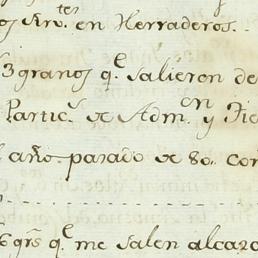 os sirvtes en Herraderos.
3 granos qe salieron de
Partics de Admon y Fie
l año pasado de 80. con
6 grs qe me salen alcanz